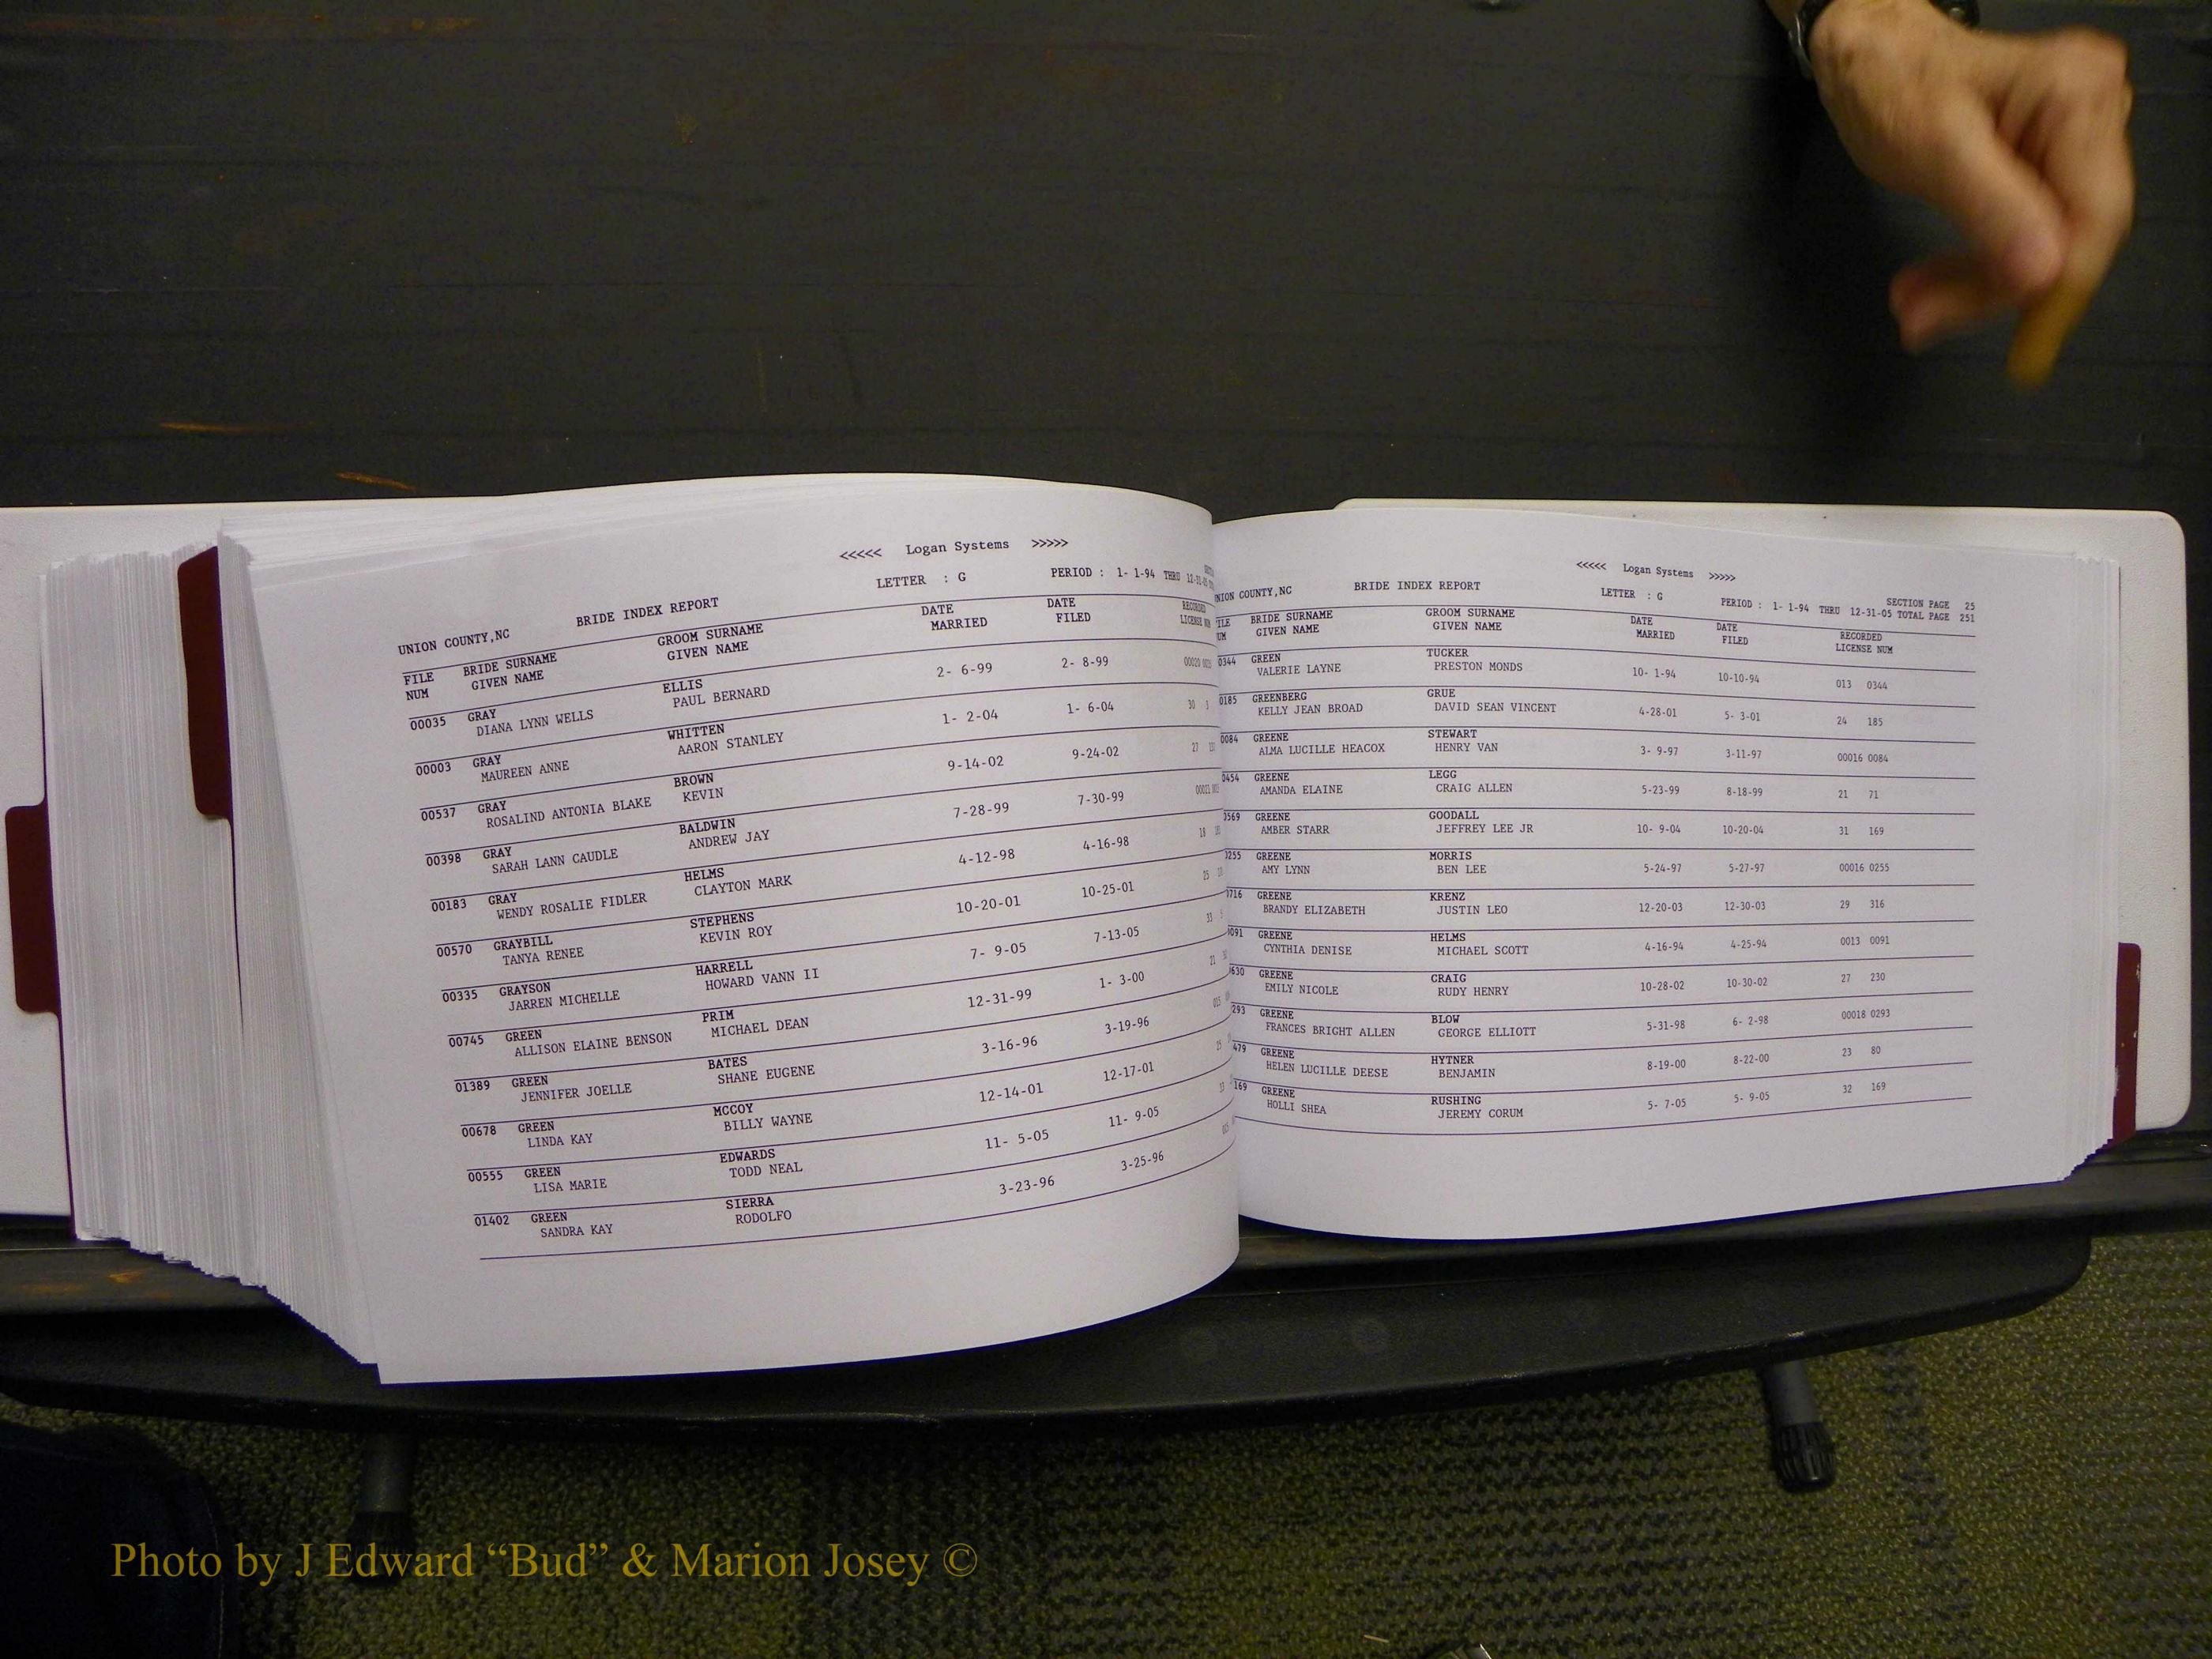 <<<<< Logan Systems >>>>>
LETTER : G PERIOD : 1- 1-94 THRU
UNION COUNTY,NC BRIDE INDEX REPORT
FILE BRIDE SURNAME GROOM SURNAME DATE DATE RECORDED
NUM GIVEN NAME GIVEN NAME MARRIED FILED LICENSE NUM
00035 GRAY ELLIS 2- 6-99 2- 8-99
DIANA LYNN WELLS PAUL BERNARD
00003 GRAY WHITTEN 1- 2-04 1- 6-04
MAUREEN ANNE AARON STANLEY
00537 GRAY BROWN 9-14-02 9-24-02
ROSALIND ANTONIA BLAKE KEVIN
00398 GRAY BALDWIN 7-28-99 7-30-99
SARAH LANN CAUDLE ANDREW JAY
00183 GRAY HELMS 4-12-98 4-16-98
WENDY ROSALIE FIDLER CLAYTON MARK
00570 GRAYBILL STEPHENS 10-20-01 10-25-01
TANYA RENEE KEVIN ROY
00335 GRAYSON HARRELL 7- 9-05 7-13-05
JARREN MICHELLE HOWARD VANN II
00745 GREEN PRIM 12-31-99 1- 3-00
ALLISON ELAINE BENSON MICHAEL DEAN
01389 GREEN BATES 3-16-96 3-19-96
JENNIFER JOELLE SHANE EUGENE
00678 GREEN MCCOY 12-14-01 12-17-01
LINDA KAY BILLY WAYNE
00555 GREEN EDWARDS 11- 5-05 11- 9-05
LISA MARIE TODD NEAL
01402 GREEN SIERRA 3-23-96 3-25-96
SANDRA KAY RODOLFO
<<<<< Logan Systems >>>>>
SECTION PAGE 25
UNION COUNTY,NC BRIDE INDEX REPORT LETTER : G PERIOD : 1- 1-94 THRU 12-31-05 TOTAL PAGE 251
BRIDE SURNAME GROOM SURNAME DATE DATE RECORDED
GIVEN NAME GIVEN NAME MARRIED FILED LICENSE NUM
0344 GREEN TUCKER 10- 1-94 10-10-94 013 0344
VALERIE LAYNE PRESTON MONDS
0185 GREENBERG GRUE 4-28-01 5- 3-01 24 185
KELLY JEAN BROAD DAVID SEAN VINCENT
0084 GREENE STEWART 3- 9-97 3-11-97 00016 0084
ALMA LUCILLE HEACOX HENRY VAN
0454 GREENE LEGG 5-23-99 8-18-99 21 71
AMANDA ELAINE CRAIG ALLEN
569 GREENE GOODALL 10- 9-04 10-20-04 31 169
AMBER STARR JEFFREY LEE JR
255 GREENE MORRIS 5-24-97 5-27-97 00016 0255
AMY LYNN BEN LEE
716 GREENE KRENZ 12-20-03 12-30-03 29 316
BRANDY ELIZABETH JUSTIN LEO
091 GREENE HELMS 4-16-94 4-25-94 0013 0091
CYNTHIA DENISE MICHAEL SCOTT
630 GREENE CRAIG 10-28-02 10-30-02 27 230
EMILY NICOLE RUDY HENRY
293 GREENE BLOW 5-31-98 6- 2-98 00018 0293
FRANCES BRIGHT ALLEN GEORGE ELLIOTT
479 GREENE HYTNER 8-19-00 8-22-00 23 80
HELEN LUCILLE DEESE BENJAMIN
169 GREENE RUSHING 5- 7-05 5- 9-05 32 169
HOLLI SHEA JEREMY CORUM
Photo by J Edward “Bud” & Marion Josey ©